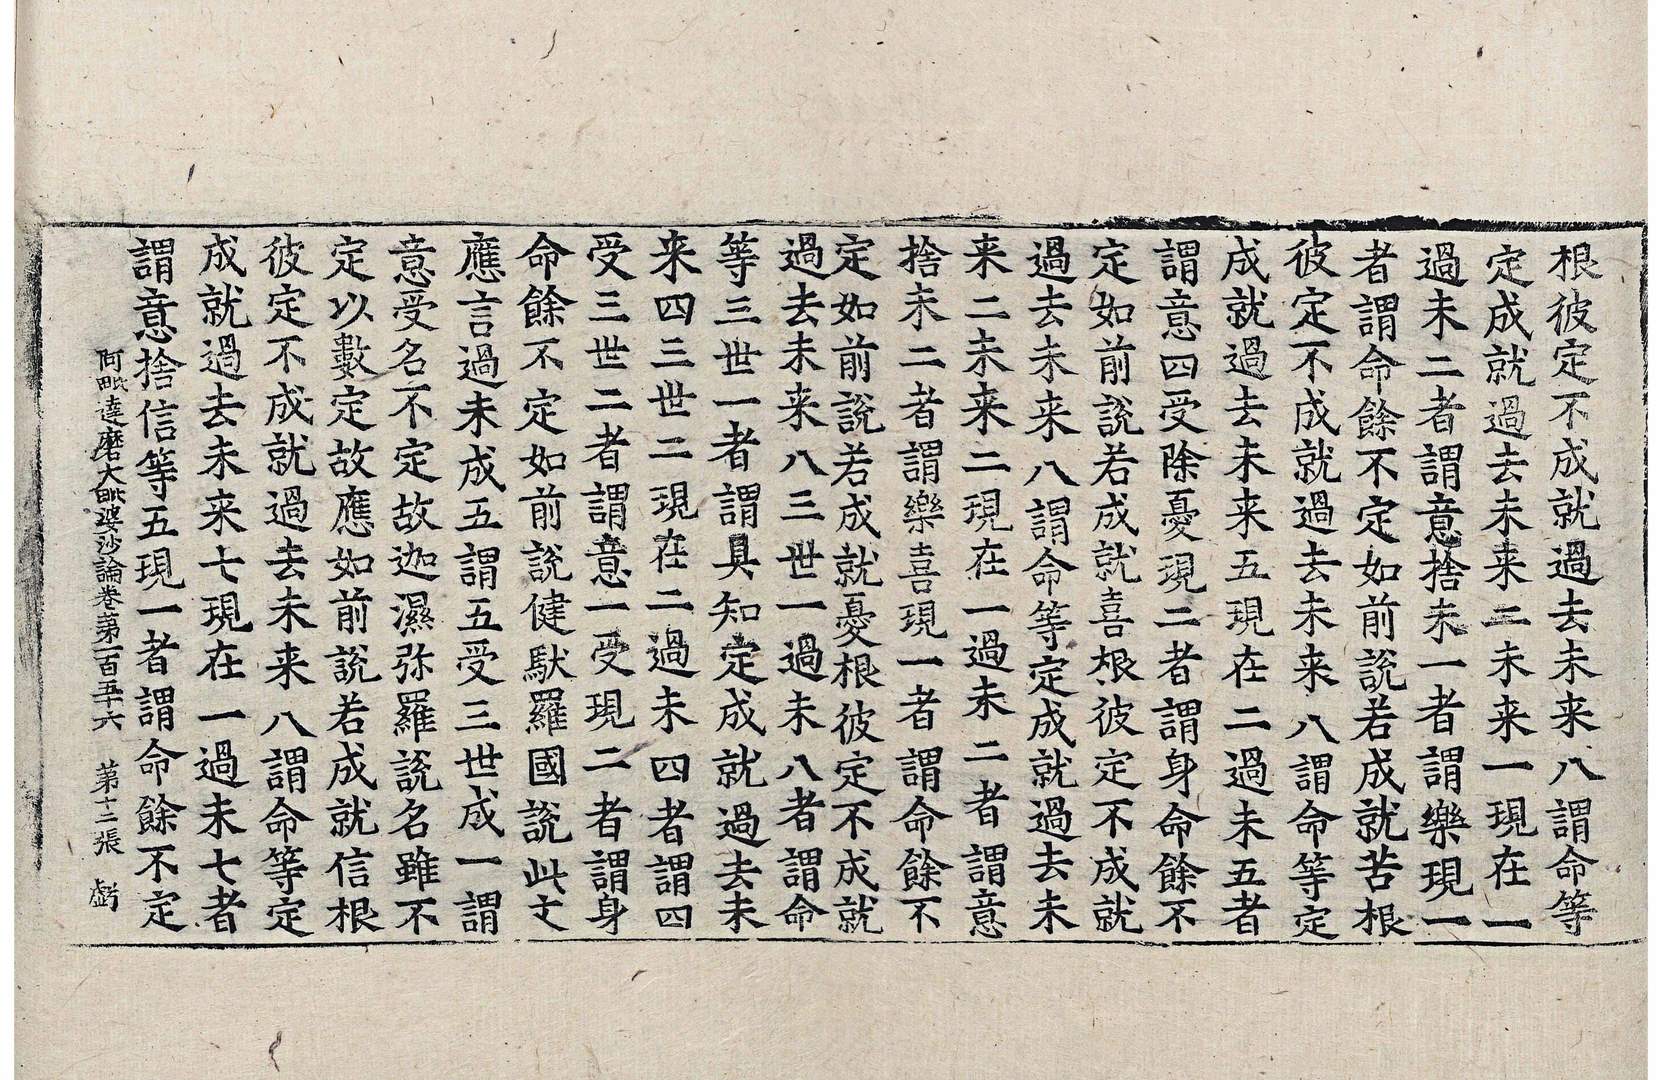 根彼定不成就過去未来八謂命等
定成就過去未来二未来一現在一
過未二者謂意捨未一者謂樂現一
者謂命餘不定如前說若成就苦根
彼定不成就過去未来八謂命等定
成就過去未来五現在二過未五者
謂意四受除憂現二者謂身命餘不
定如前說若成就喜根彼定不成就
過去未来八謂命等定成就過去未
来二未来二現在一過未二者謂意
捨未二者謂樂喜現一者謂命餘不
定如前說若成就憂根彼定不成就
過去未来八三世一過未八者謂命
等三世一者謂具知定成就過去未
来四三世二現在二過未四者謂四
受三世二者謂意一受現二者謂身
命餘不定如前說健馱羅國說此文
應言過未成五謂五受三世成一謂
意受名不定故迦濕弥羅說名雖不
定以數定故應如前說若成就信根
彼定不成就過去未来八謂命等定
成就過去未来七現在一過未七者
謂意捨信等五現一者謂命餘不定
阿毗達磨大毗婆沙論卷第一百五十六 第十二張 虧